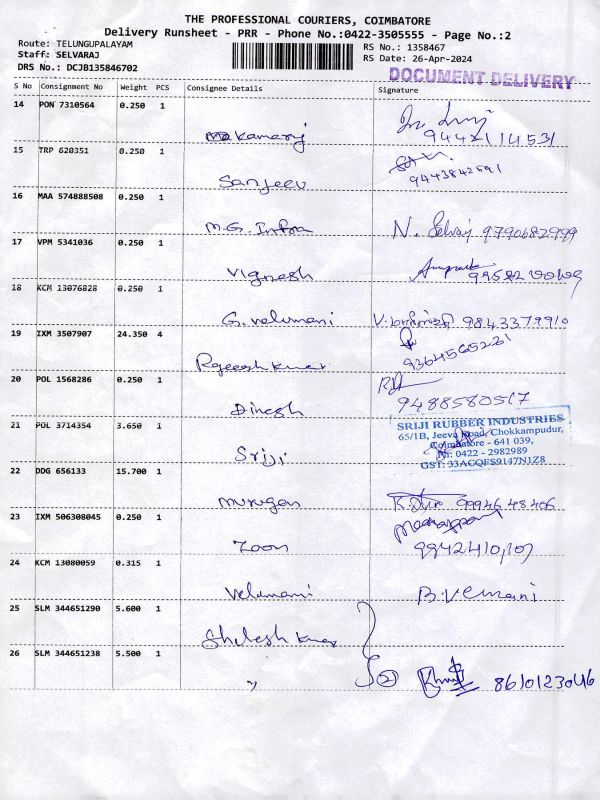 THE PROFESSIONAL COURIERS, COIMBATORE
Delivery Runsheet - PRR - Phone No.:0422-3505555 - Page No.:2
Route: TELUNGUPALAYAM
RS No.: 1358467
Staff: SELVARAJ
RS Date: 26-Apr-2024
DRS No.: DCJB135846702
DOCUMENT DELIVERY
S No Consignment No Weight PCS Consignee Details Signature
14 PON 7310564 0.250 1
Kamaraj
9442114531
15 TRP 620351 0.250 1
Sanjeev 9443842691
16 MAA 574888508 0.250 1
M.G. Infra N. Selvaj 9790682999
17 VPM 5341036 0.250 1
Vignesh
18 KCM 13076828 0.250 1
G. Velumani 9843379910
19 IXM 3507907 24.350 4
Rajeesh kumar 9364565221
20 POL 1568286 0.250 1
Dinesh 9488580517
21 POL 3714354 3.650 1
Sriji
SRIJI RUBBER INDUSTRIES
65/1B, Jeeva Road, Chokkampudur,
Coimbatore - 641 039,
Ph: 0422 - 2982989
GST: 33ACQFS9147N1Z8
22 DDG 656133 15.700 1
Murugan 99946 48406
23 IXM 506308045 0.250 1
Zoom 9942410,107
24 KCM 13080059 0.315 1
Velumani B. Vemani
25 SLM 344651290 5.600 1
Shilesh kumar
26 SLM 344651238 5.500 1
" 2 8610123046